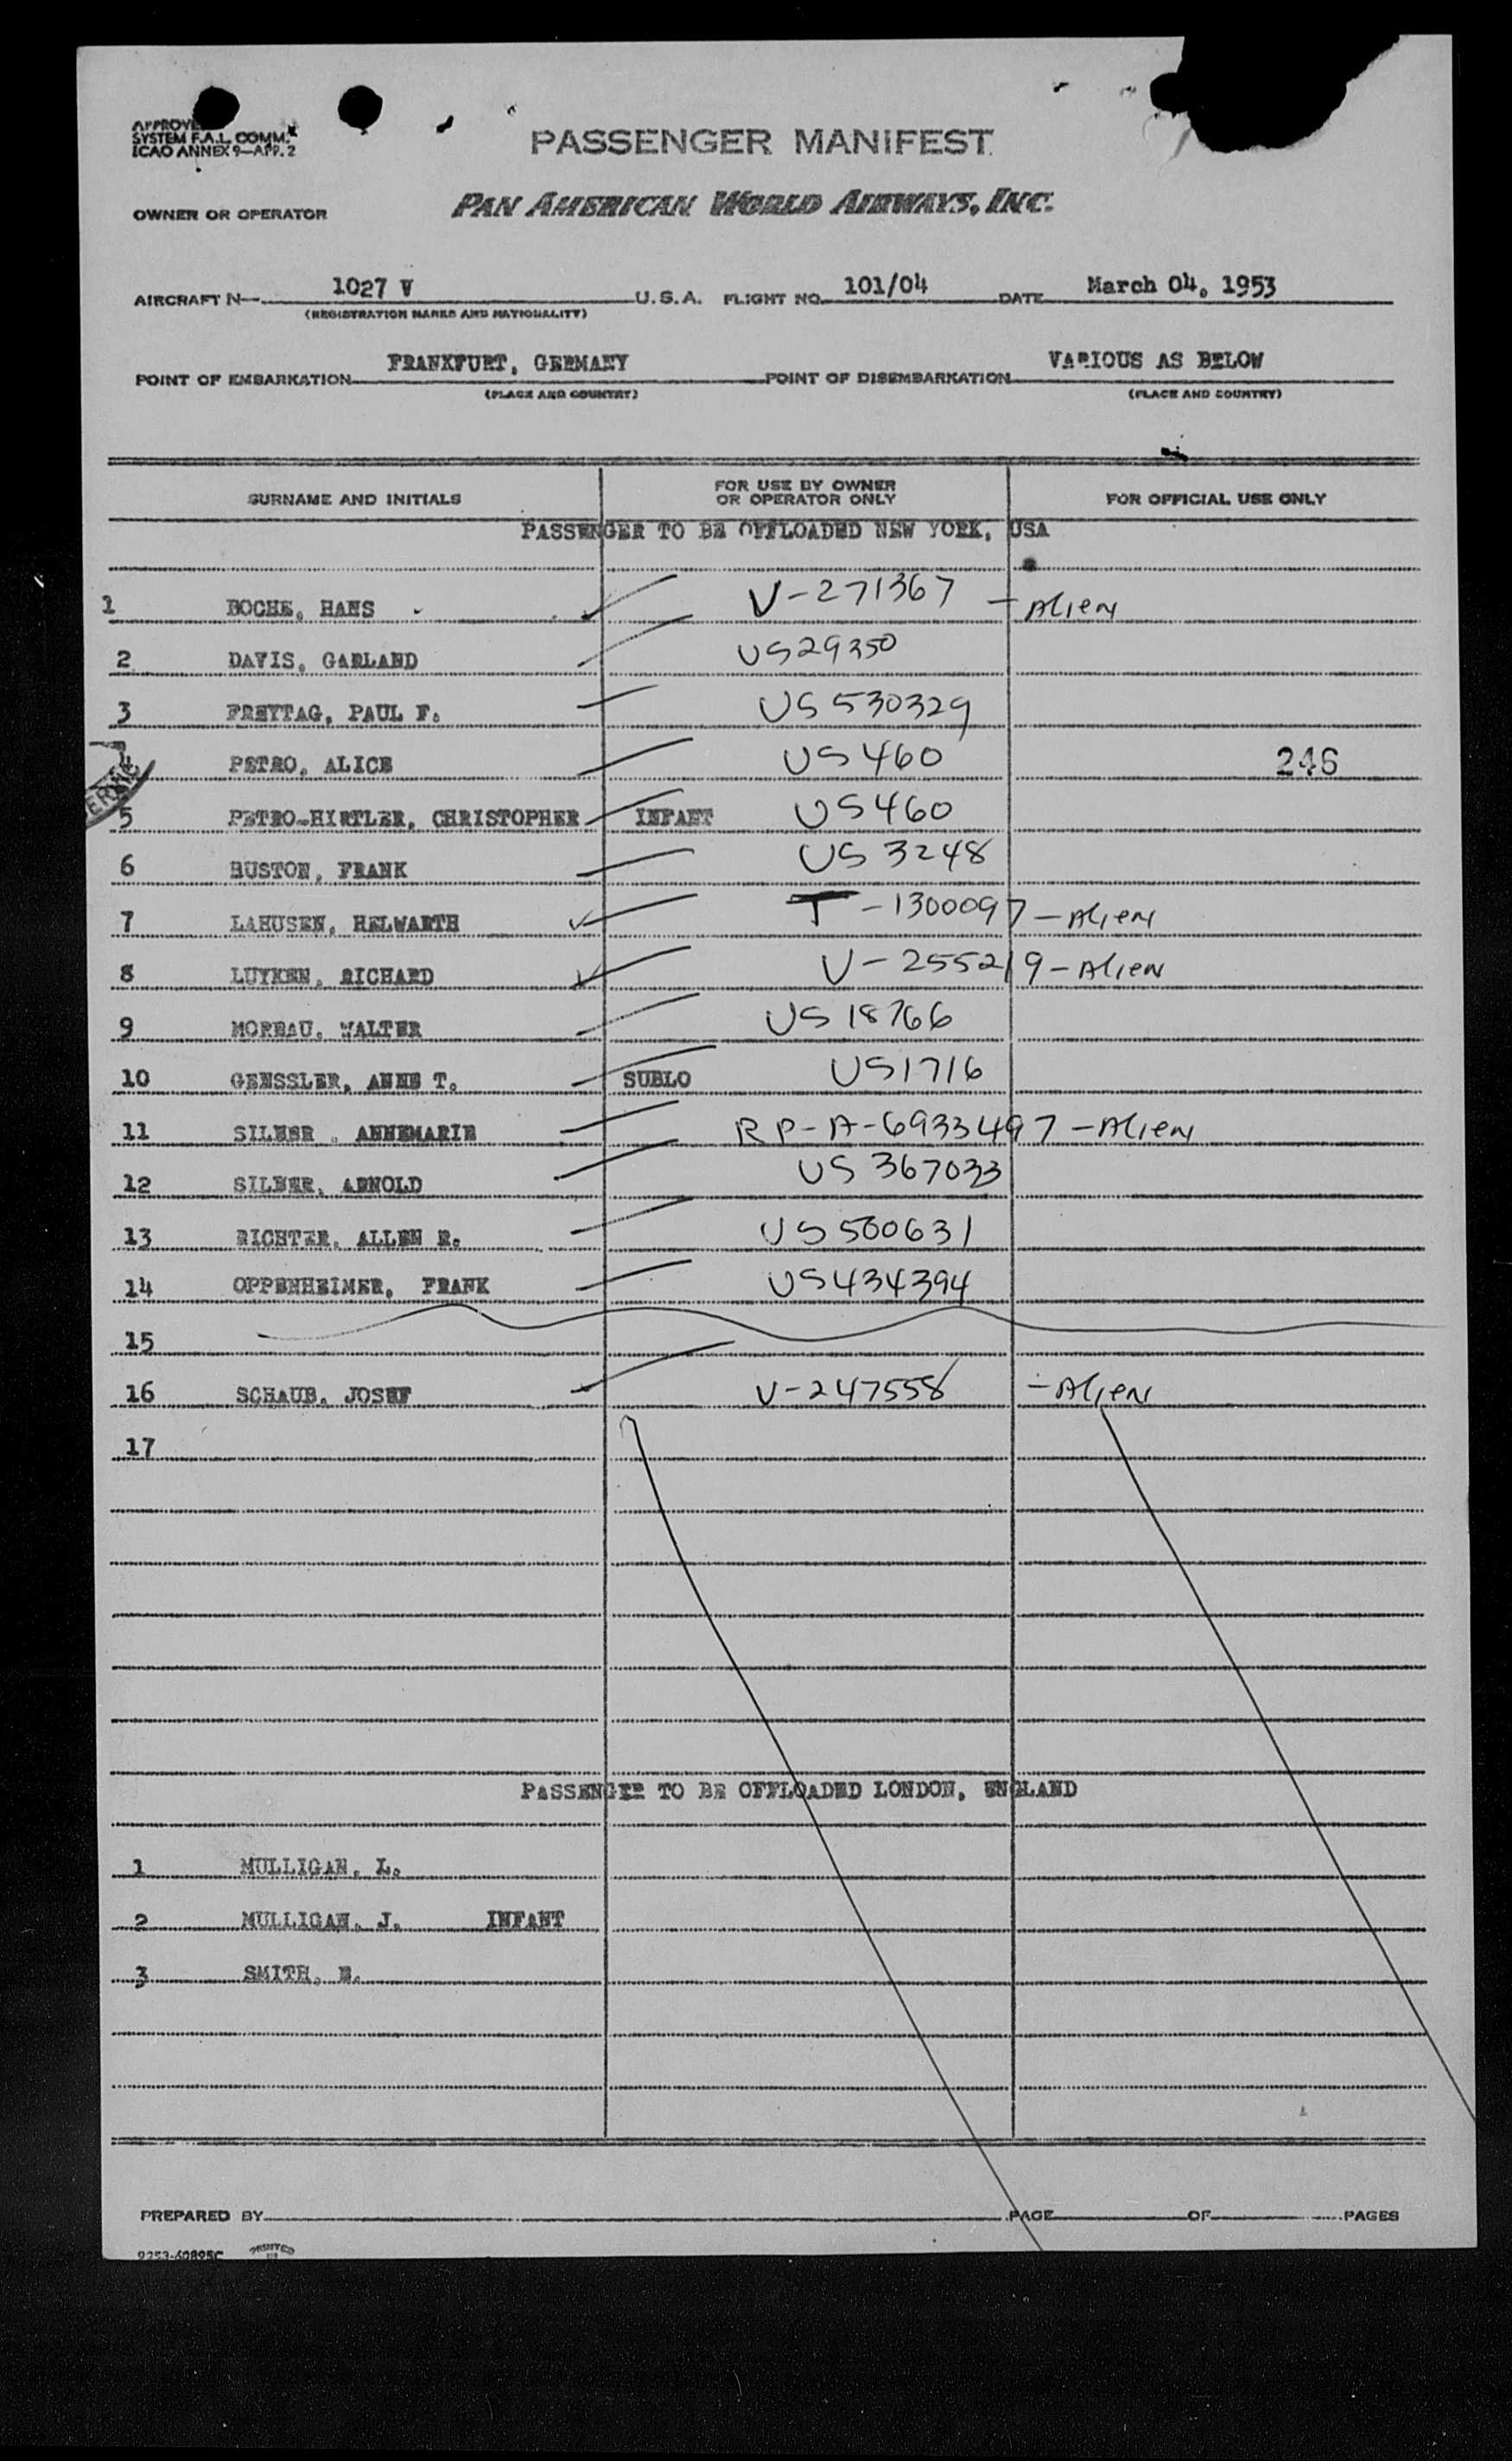 APPROVED
SYSTEM F.A.L. COMM.
ICAO ANNEX 9—APP. 2
PASSENGER MANIFEST
OWNER OR OPERATOR PAN AMERICAN WORLD AIRWAYS, INC.
AIRCRAFT N— 1027 V U.S.A. FLIGHT NO. 101/04 DATE March 04, 1953
(REGISTRATION MARKS AND NATIONALITY)
POINT OF EMBARKATION FRANKFURT, GERMANY POINT OF DISEMBARKATION VARIOUS AS BELOW
(PLACE AND COUNTRY) (PLACE AND COUNTRY)
SURNAME AND INITIALS FOR USE BY OWNER OR OPERATOR ONLY FOR OFFICIAL USE ONLY
PASSENGER TO BE OFFLOADED NEW YORK, USA
1 BOCHE, HANS V-271367 - Alien
2 DAVIS, GARLAND US29350
3 FREYTAG, PAUL F. US 530329
4 PETRO, ALICE US 460 246
5 PETRO-HIRTLER, CHRISTOPHER INFANT US 460
6 RUSTON, FRANK US 3248
7 LAHUSEN, HELWARTH T-1300097 - Alien
8 LUYKEN, RICHARD V-255219 - Alien
9 MOREAU, WALTER US 18766
10 GENSSLER, ANNE T. SUBLO US1716
11 SILBER, ANNEMARIE RP-A-6933497 - Alien
12 SILBER, ARNOLD US 367033
13 RICHTER, ALLEN R. US 500631
14 OPPENHEIMER, FRANK US434394
15
16 SCHAUB, JOSEF V-247558 - Alien
17
PASSENGER TO BE OFFLOADED LONDON, ENGLAND
1 MULLIGAN, L.
2 MULLIGAN, J. INFANT
3 SMITH, E.
PREPARED BY PAGE OF PAGES
9253-60895C PRINTED